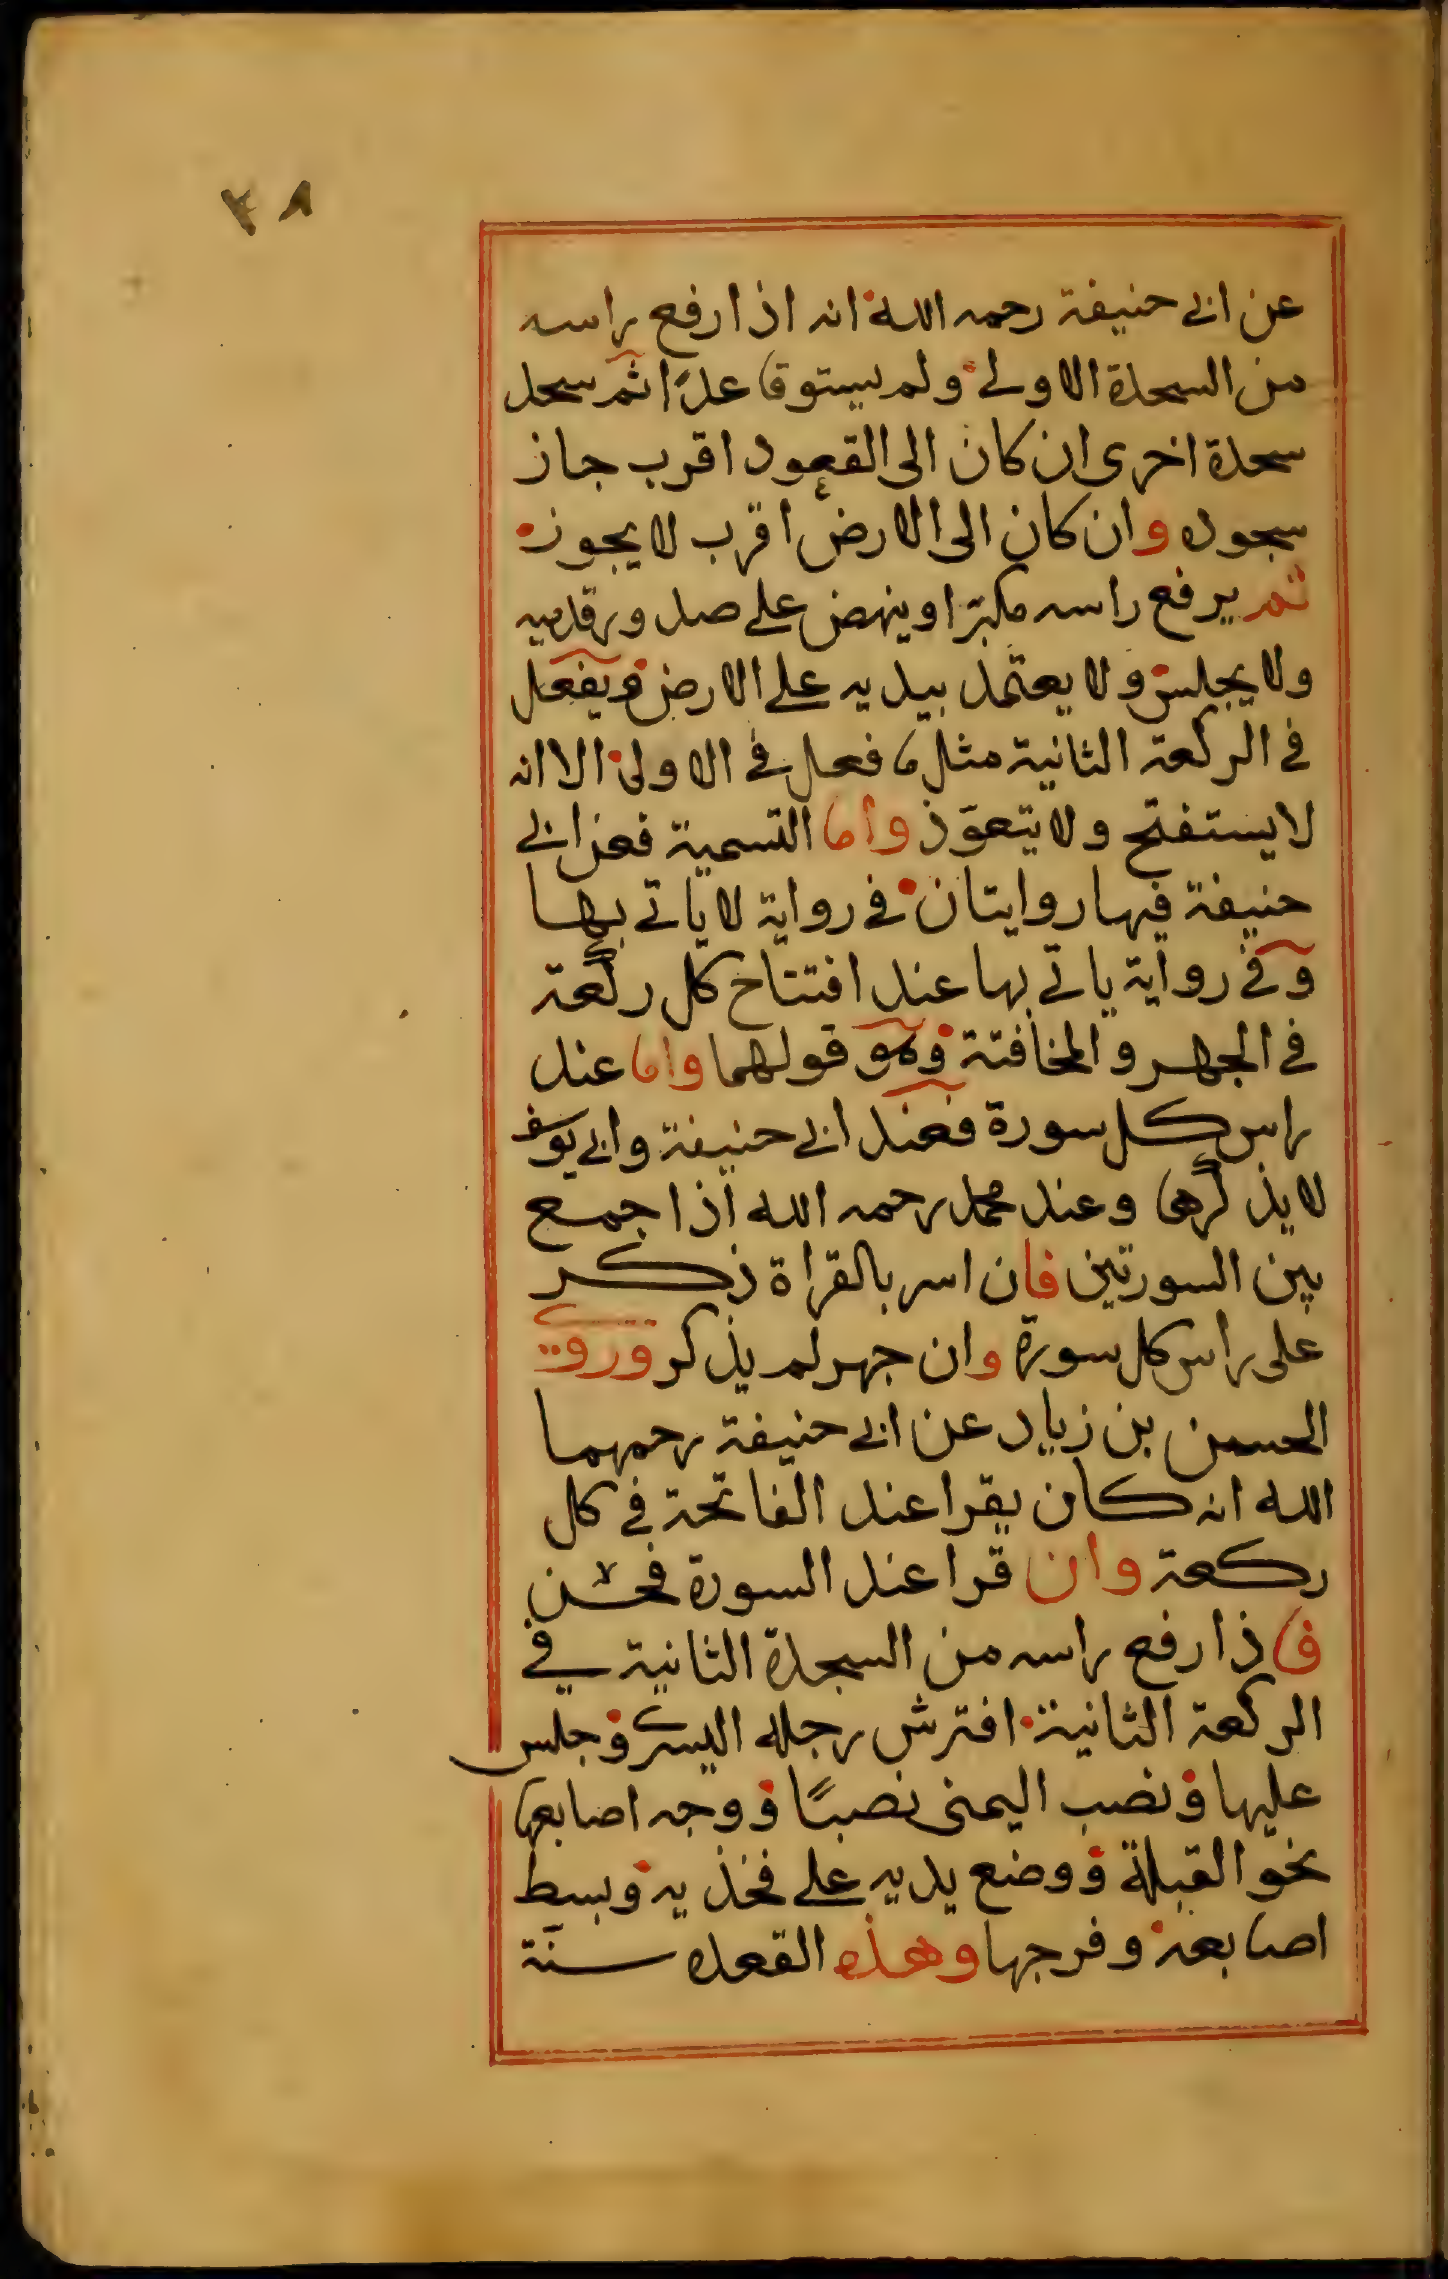 ٣٨
عن ابى حنيفة رحمه الله انه اذا رفع راسه
من السجدة الاولى ولم يستو قاعدًا ثم سجد
سجدة اخرى ان كان الى القعود اقرب جاز
سجوده وان كان الى الارض اقرب لا يجوز
ثم يرفع راسه مكبّرا وينهض على صدور قدميه
ولا يجلس ولا يعتمد بيديه على الارض ويفعل
فى الركعة الثانية مثل ما فعل فى الاولى الا انه
لا يستفتح ولا يتعوّذ واما التسمية فعن ابى
حنيفة فيها روايتان فى رواية لا ياتى بها
وفى رواية ياتى بها عند افتتاح كل ركعة
فى الجهر والمخافتة وهو قولهما واما عند
راس كل سورة فعند ابى حنيفة وابى يوسف
لا يذكرها وعند محمد رحمه الله اذا جمع
بين السورتين فان اسر بالقراة ذكر
على راس كل سورة وان جهر لم يذكر وروى
الحسن بن زياد عن ابى حنيفة رحمهما
الله انه كان يقرا عند الفاتحة فى كل
ركعة وان قرا عند السورة فحسن
فاذا رفع راسه من السجدة الثانية فى
الركعة الثانية افترش رجله اليسرى وجلس
عليها ونصب اليمنى نصبًا ووجه اصابعها
نحو القبلة ووضع يديه على فخذيه وبسط
اصابعه وفرجها وهذه القعده سنّة